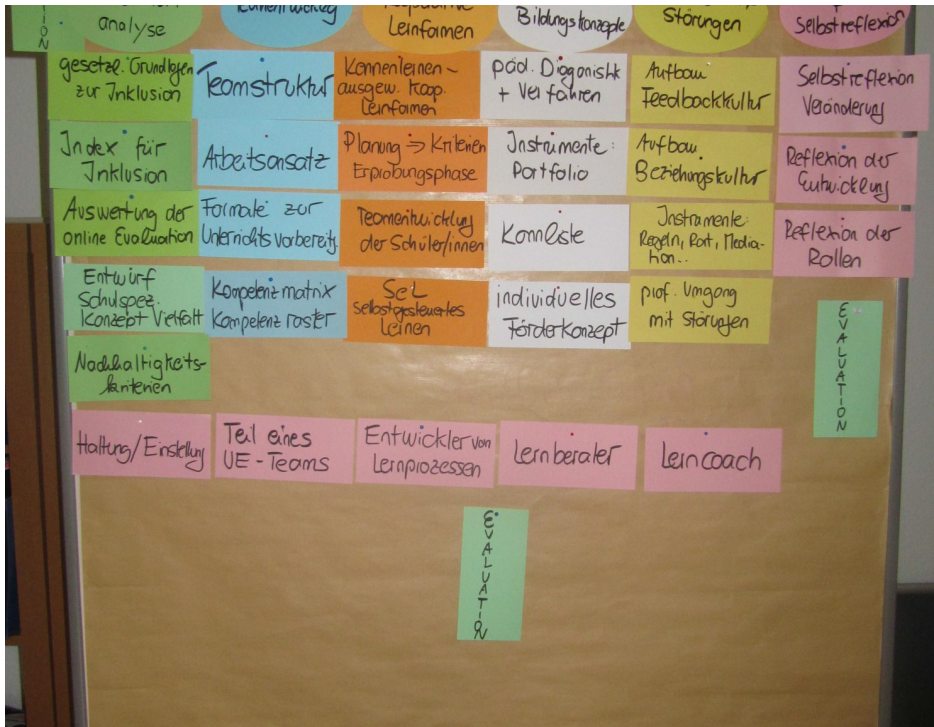 analyse
Lernformen
Bildungskonzepte
Störungen
Selbstreflexion
gesetzl. Grundlagen
zur Inklusion
Index für
Inklusion
Auswertung der
online Evaluation
Entwurf
Schulspez.
Konzept Vielfalt
Nachhaltigkeits-
kriterien
Teamstruktur
Arbeitsansatz
Formate zur
Unterrichtsvorbereitg
Kompetenzmatrix
Kompetenzraster
Kennenlernen -
ausgew. koop.
Lernformen
Planung => Kriterien
Erprobungsphase
Teamentwicklung
der Schüler/innen
SeL
selbstgesteuertes
Lernen
päd. Diagonistik
+ Verfahren
Instrumente:
Portfolio
Kannliste
individuelles
Förderkonzept
Aufbau
Feedbackkultur
Aufbau
Beziehungskultur
Instrumente:
Regeln, Rat, Media-
tion...
prof. Umgang
mit Störungen
Selbstreflexion
Veränderung
Reflexion der
Entwicklung
Reflexion der
Rollen
EVALUATION
Haltung/Einstellung
Teil eines
UE-Teams
Entwickler von
Lernprozessen
Lernberater
Lerncoach
EVALUATION